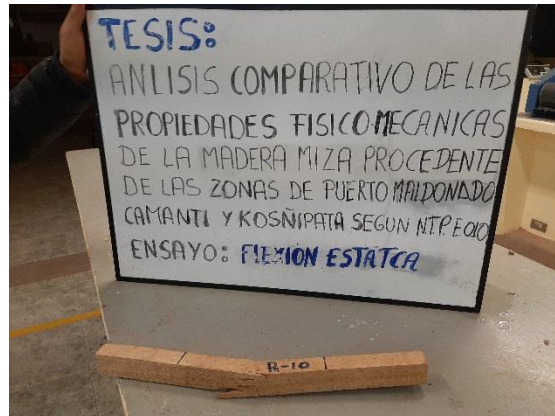 TESIS:
ANLISIS COMPARATIVO DE LAS
PROPIEDADES FISICO MECANICAS
DE LA MADERA MIZA PROCEDENTE
DE LAS ZONAS DE PUERTO MALDONADO
CAMANTI Y KOSÑIPATA SEGUN NTP. E010
ENSAYO: FLEXIÓN ESTÁTCA
R-10